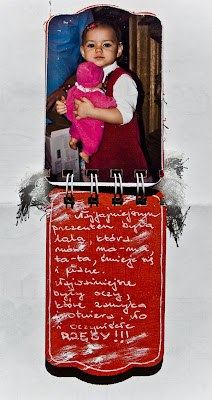 Najfajniejszym
prezentem była
lala która
mówi ma-ma
ta-ta, śmieje się
i płacze.
Najważniejsze
były oczy,
które zamyka
i otwiera no
i oczywiście
RZĘSY!!!